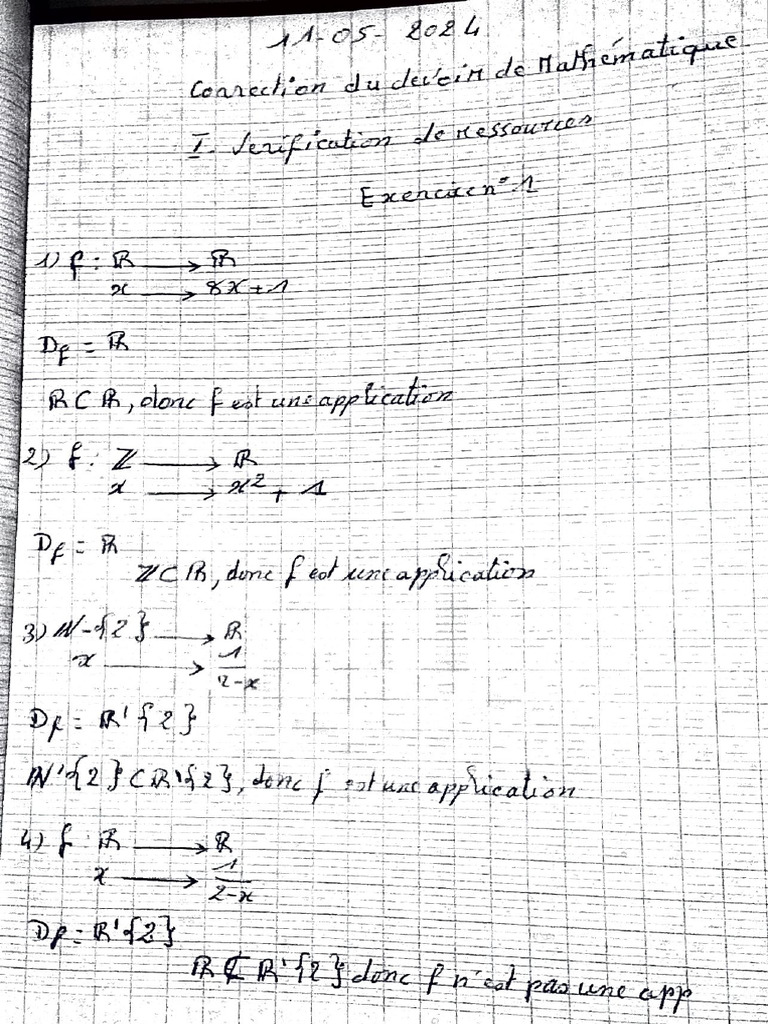 11-05-2024
Correction du devoir de Mathématique
I. Verification de ressources
Exercice n°1
1) f : ℝ → ℝ
x → 8x+1
Df = ℝ
ℝ⊂ℝ, donc f est une application
2) f : ℤ → ℝ
x → x² + 1
Df = ℝ
ℤ⊂ℝ, donc f est une application
3) ℕ-{2} → ℝ
x → 1/(2-x)
Df = ℝ'{2}
ℕ'{2}⊂ℝ'{2}, donc f est une application
4) f ℝ → ℝ
x → 1/(2-x)
Df = ℝ'{2}
ℝ⊄ℝ'{2} donc f n'est pas une app